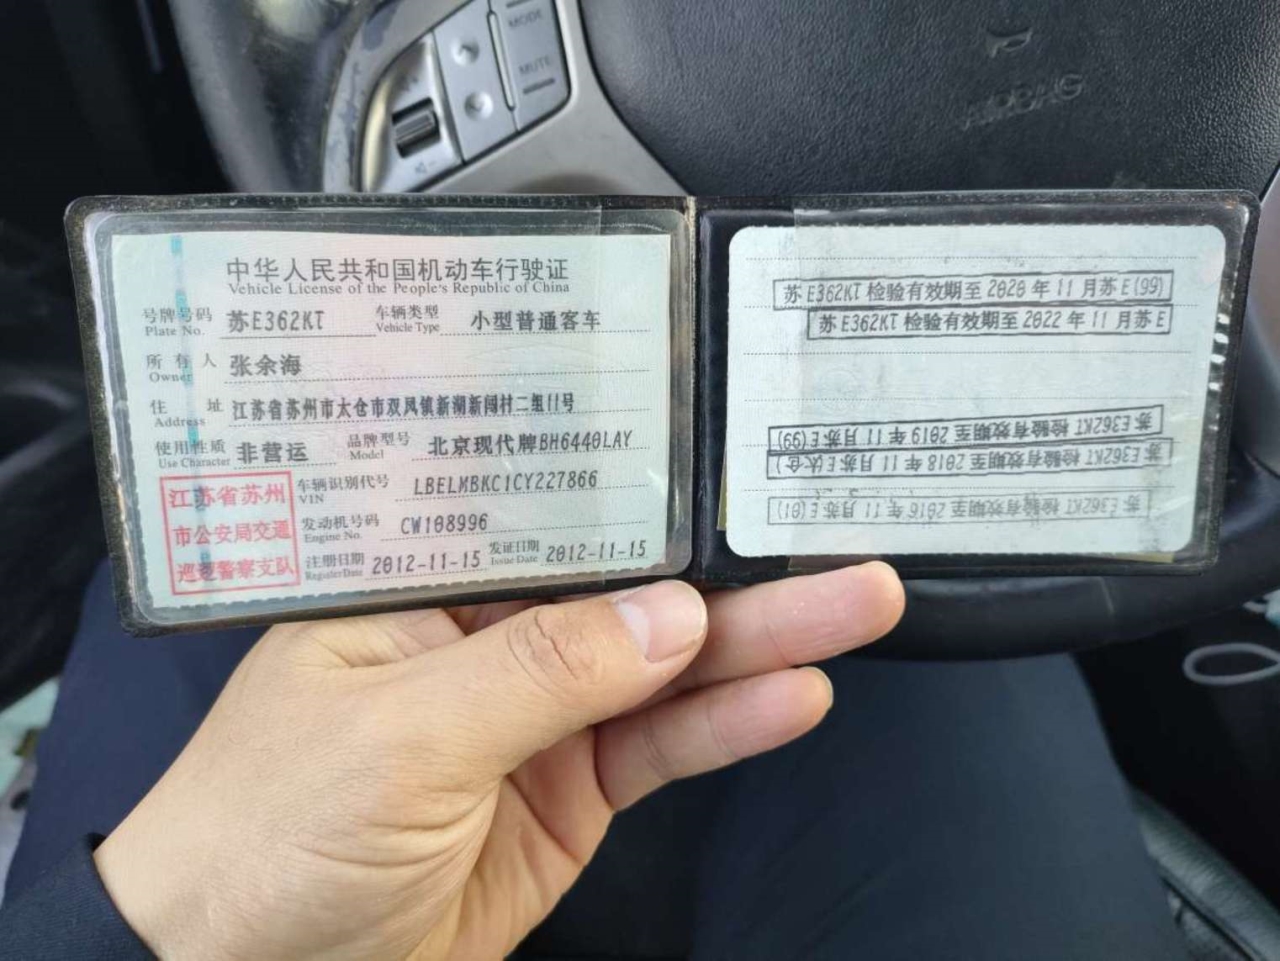 MODE
MUTE
AIRBAG
中华人民共和国机动车行驶证
Vehicle License of the People's Republic of China
号牌号码 苏E362KT 车辆类型 小型普通客车
Plate No. Vehicle Type
所有人 张余海
Owner
住址 江苏省苏州市太仓市双凤镇新湖新闯村二组11号
Address
使用性质 非营运 品牌型号 北京现代牌BH6440LAY
Use Character Model
江苏省苏州
市公安局交通
巡逻警察支队
车辆识别代号 LBELMBKC1CY227866
VIN
发动机号码 CW108996
Engine No.
注册日期 2012-11-15 发证日期 2012-11-15
Register Date Issue Date
苏E362KT 检验有效期至 2020 年 11 月苏E(99)
苏E362KT 检验有效期至 2022 年 11 月苏E
苏E362KT 检验有效期至 2019 年 11 月苏E(99)
苏E362KT 检验有效期至 2018 年 11 月苏E(太仓)
苏E362KT 检验有效期至 2016 年 11 月苏E(01)